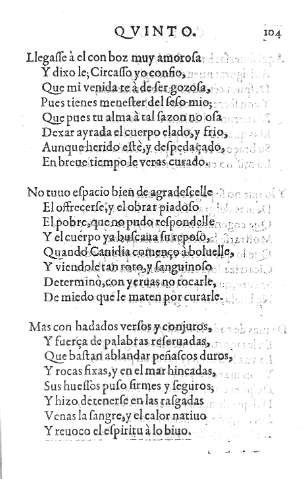 QVINTO. 104
Llegasse à el con boz muy amorosa
Y dixo le; Circasso yo confio,
Que mi venida te à de ser gozosa,
Pues tienes menester del seso mio;
Que pues tu alma à tal sazon no osa
Dexar ayrada el cuerpo elado, y frio,
Aunque herido estè, y despedaçado,
En breue tiempo le veras curado.
No tuuo espacio bien de agradescelle
El offrecerse, y el obrar piadoso
El pobre, que no pudo respondelle
Y el cuerpo ya buscaua su reposo,
Quando Canidia començo à boluelle,
Y viendole tan roto, y sanguinoso
Determinò, con yeruas no tocarle,
De miedo que le maten por curarle.
Mas con hadados versos y conjuros,
Y fuerça de palabras reseruadas,
Que bastan ablandar peñascos duros,
Y rocas fixas, y en el mar hincadas,
Sus huessos puso firmes y seguros;
Y hizo detenerse en las rasgadas
Venas la sangre, y el calor natiuo
Y reuoco el espiritu à lo biuo.